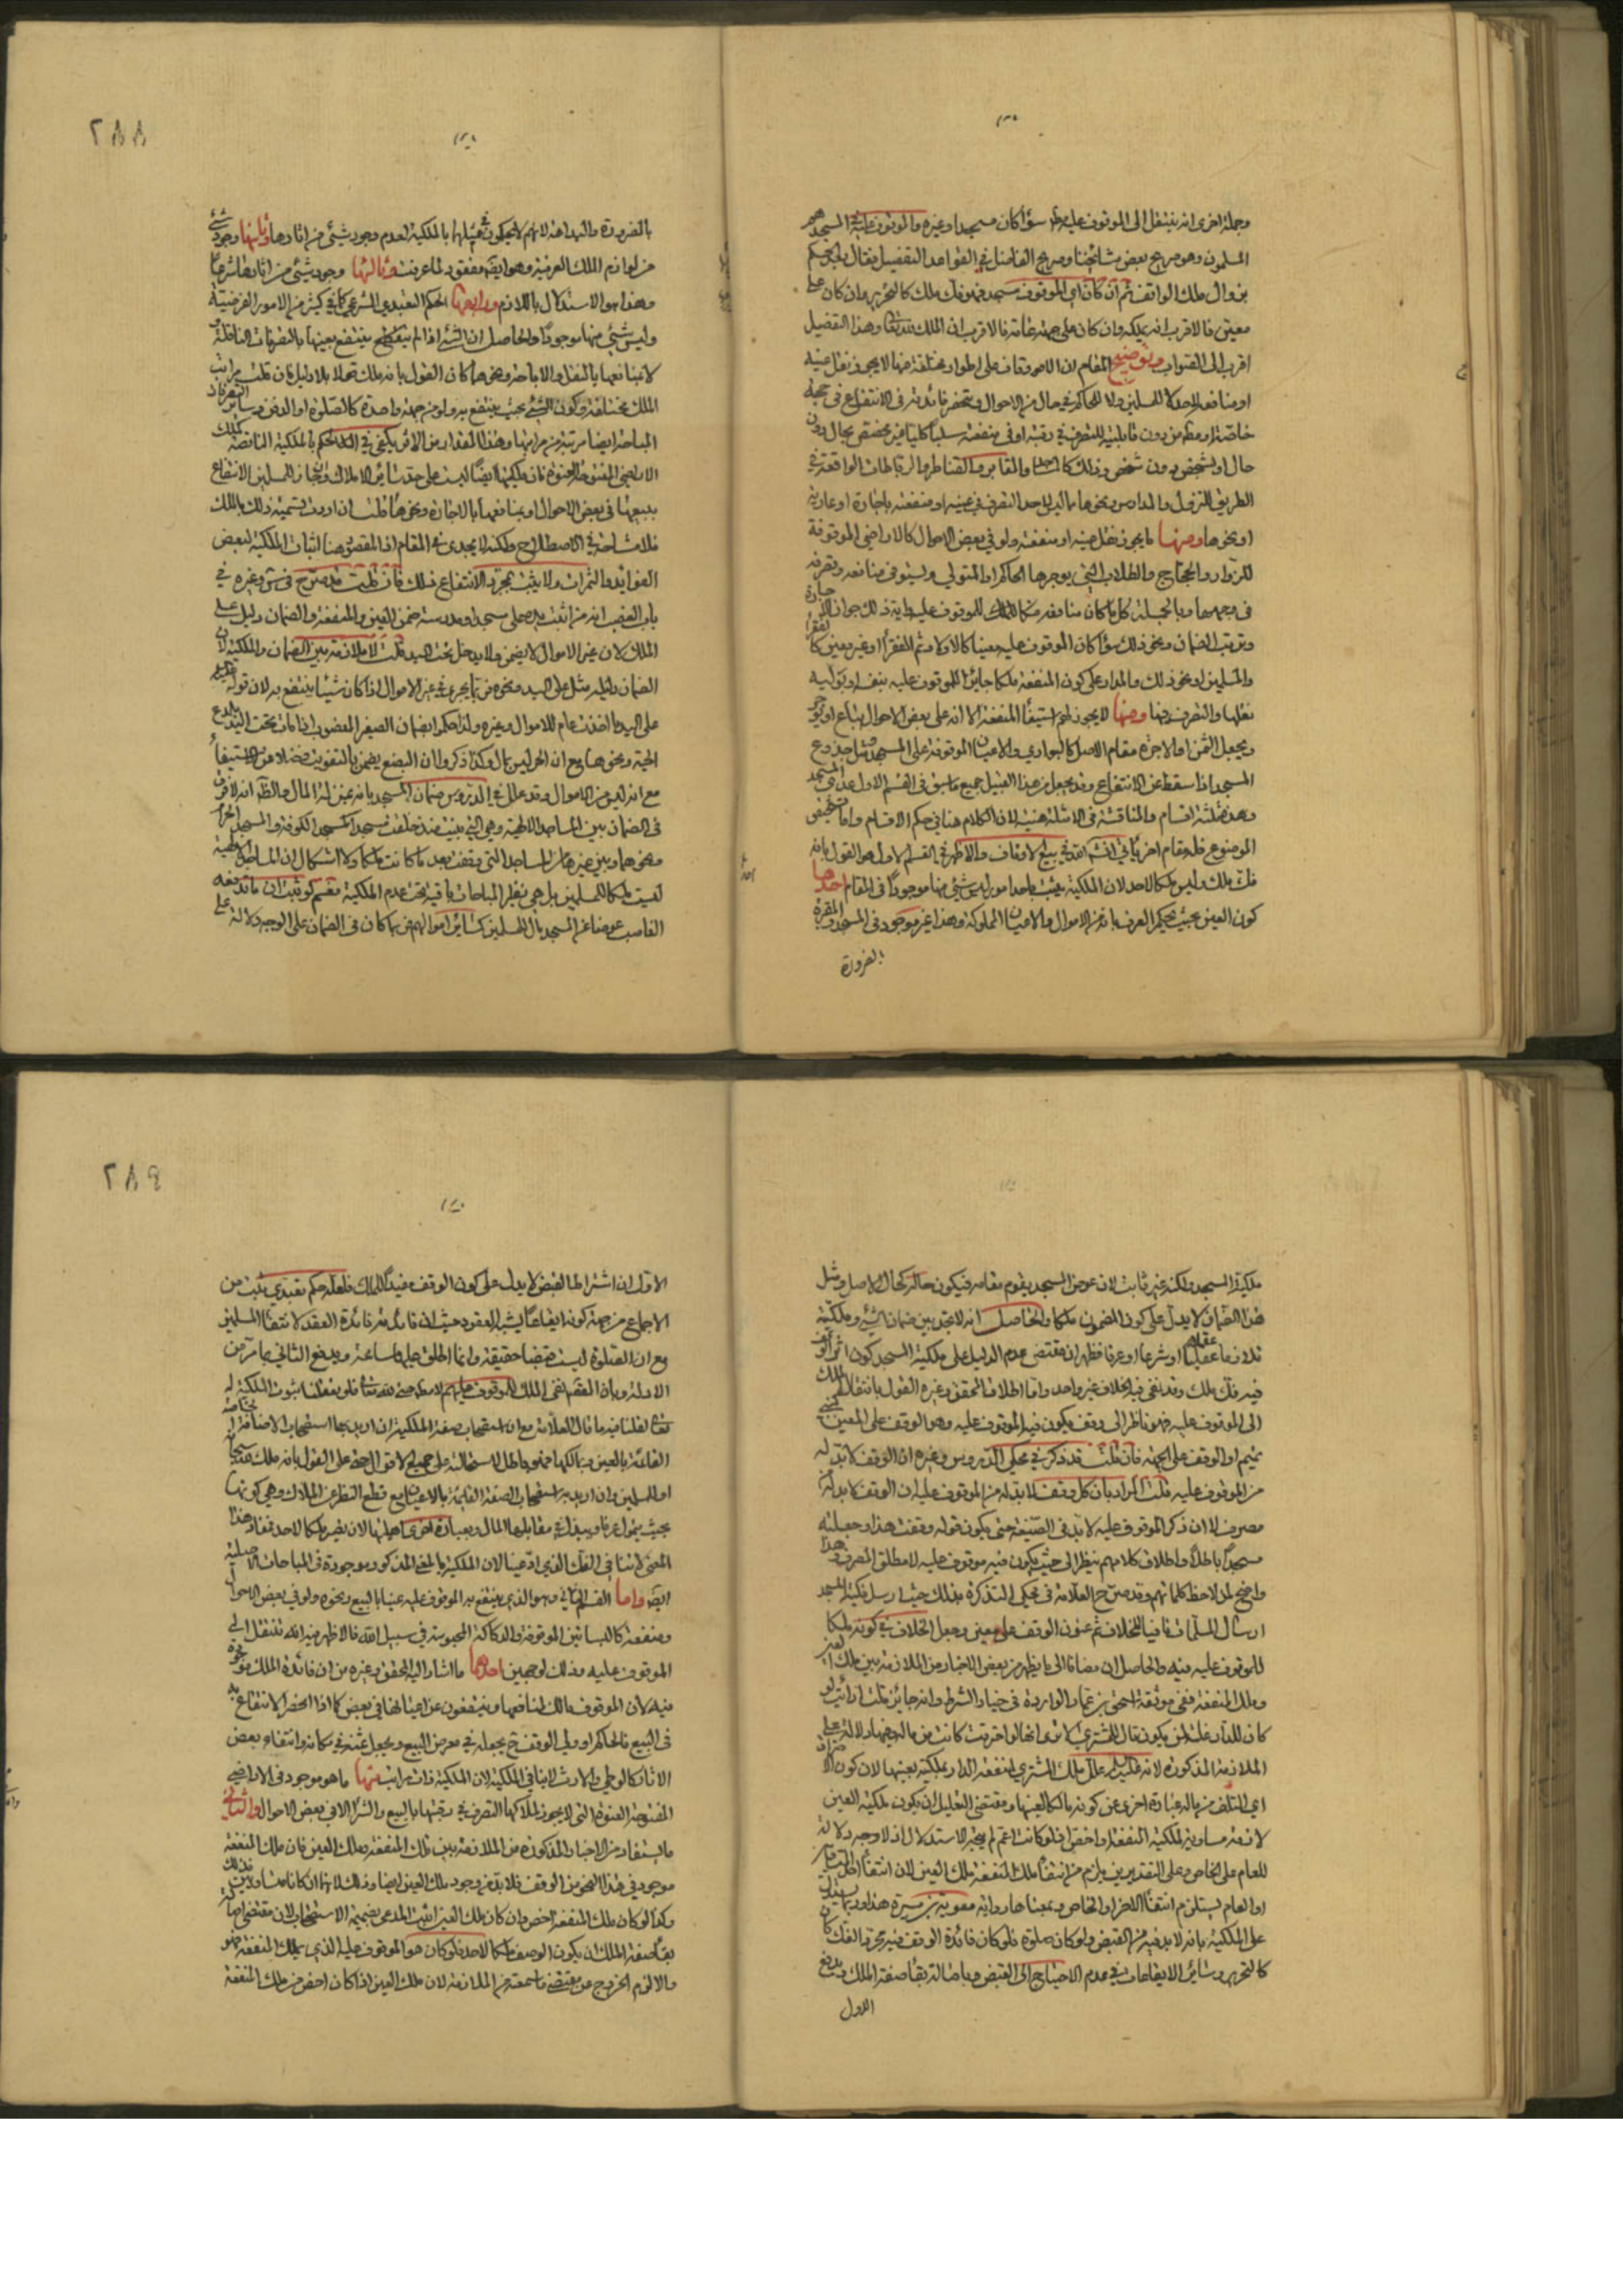 وجملة اخرى انه ينتقل الى الموقوف عليه سواء كان مسجدا وغيره والموقوف عليه في المسجد هم
المسلمون وهو صريح بعض مشائخنا وصريح الفاضل في القواعد التفصيل فقال
بزوال ملك الواقف ثم ان كان الموقوف مسجد فهو فك ملك كالتحرير وان كان على
معين فالاقرب انه يملكه وان كان على جهة عامة فالاقرب ان الملك لله تعالى وهذا التفصيل
اقرب الى الصواب وتوضيح المقام ان الاوقاف على اطوار مختلفة منها لا يجوز نقل عينه
او منافعه لاحد لا للمسلمين ولا للحاكم في حال من الاحوال وينحصر فائدته في الانتفاع في جهة
خاصة او مطلقا من دون قابلية للتصرف في رقبته او في منفعته سلبا كليا غير مختص بحال دون
حال او شخص دون شخص وذلك كالمساجد والمقابر والقناطر والرباطات الواقعة في
الطريق للنزول والمدارس ونحوها مما ليس لاحد التصرف في عينه او منفعته باجارة او عارية
او نحوها ومنها ما يجوز نقل عينه او منفعته ولو في بعض الاحوال كالاراضي الموقوفة
للزوار والحجاج والطلاب التي يوجرها الحاكم او المتولي ويستوفى منافعه ويصرفه
في وجهها وبالجملة كلما كان منافعه ملكا للموقوف عليه
وترتب الضمان ونحو ذلك سواء كان الموقوف عليه معينا كالاولاد ثم الفقراء او غير معين كالفقراء
والمسلمين او نحو ذلك والمدار على كون المنفعة ملكا جايزا للموقوف عليه بنفسه او بوليه
نقلها والتصرف فيها ومنها لا يجوز لهم استيفاء المنفعة الا انه على بعض الاحوال يباع او يوجر
ويجعل الثمن او الاجرة مقام الاصل كالبواري والاعيان الموقوفة على المسجد ومثل جذوع
المسجد اذا سقط عن الانتفاع وقد يجعل من هذا القبيل جميع ما سبق في القسم الاول عدى المسجد
وهذه ثلثة اقسام والمناقشة في الامثلة هينة لان الكلام هنا في حكم الاقسام واما تشخيص
الموضوع فله مقام اخر يأتي انشاء الله في بيع الاوقاف والاظهر في القسم الاول هو القول بانه
فك ملك وليس ملكا لاحد لان الملكية يثبت باحد امور ليس شئ منها موجودا في المقام احدها
كون العين بحيث يحكم العرف بانه من الاموال والاعيان المملوكة وهذا غير موجود في المسجد والمقبرة
بالضرورة
٢٨٨
بالضرورة والبداهة لانهم لا يحكمون في مثلها بالملكية لعدم وجود شئ من اثارها وثانيها وجود شئ
من لوازم الملك العرفية وهو ايضا مفقود لما عرفت وثالثها وجود شئ من اثارها شرعا
وهذا هو الاستدلال باللازم ورابعها الحكم التعبدي الشرعي كما في كثير من الامور الفرضية
وليس شئ منها موجودا والحاصل ان الشئ اذا لم ينتفع بعينها بالتصرفات الناقلة
لا بمنافعها بالنقل والاباحة ونحوها كان القول بانه ملك تحكما بلا دليل فان قلت مراتب
الملك مختلفة وكون الشئ بحيث ينتفع به ولو من جهة واحدة كالصلوة او الدفن وساير التصرفات
المباحة ايضا مرتبة من مراتبها وهذا المقدار من الاثر يكفي في الحكم بالملكية الناقصة كملك
الاراضي المفتوحة عنوة فان ملكيتها ايضا ليست على حد سائر الاملاك وان جاز للمسلمين الانتفاع
ببيعها في بعض الاحوال او بمنافعها بالاجارة ونحوها قلت ان اردت تسمية ذلك بالملك
فلا مشاحة في الاصطلاح ولكنه لا يجدى نفعا في المقام اذ المقصود هنا اثبات الملكية لبعض
الفوائد والثمرات ولا يثبت بمجرد الانتفاع ذلك فان قلت قد صرح في ش وغيره في
باب الغصب انه من اثبت يده على مسجد او مدرسة ضمن العين والمنفعة والضمان دليل على
الملك لان غير الاموال لا يضمن ولا يدخل تحت اليد قلت لا ملازمة بين الضمان والملكية لان
الضمان دليله مثل على اليد ونحوه مما يجرى في غير الاموال اذا كان شيئا ينتفع به لان قوله
على اليد ما اخذت عام للاموال وغيره ولذا حكموا بضمان الصغير المغصوب اذا مات تحت اليد بلدغ
الحية ونحوها مع ان الحر ليس بمال وكذا ذكروا ان البضع يضمن بالتفويت فضلا عن الاستيفاء
مع انه ليس من الاموال وقد علل في الدروس ضمان المسجد بانه بمنزلة المال والظاهر انه لا فرق
في الضمان بين المساجد الاصلية وهي التي بنيت منذ خلقت مسجدا كمسجد الكوفة والمسجد الحرام
ونحوهما وبين غيرها من المساجد التي وقفت بعد ما كانت ملكا ولا اشكال ان المساجد الاصلية
ليست ملكا للمسلمين بل هي نظير المباحات باقية تحت عدم الملكية نعم لو ثبت ان ما يدفعه
الغاصب عوضا عن المسجد مال للمسلمين كسائر اموالهم ربما كان في الضمان على الوجه دلالة على
٢٨٩
ملكية المسجد ولكنه غير ثابت لان عوض المسجد يقوم مقامه فيكون حاله كحال الاصل ومثل
هذا الضمان لا يدل على كون المضمون ملكا والحاصل انه لا تجد بين ضمان الشئ وملكيته
تلازما عقليا او شرعيا او عرفيا فظهر ان مقتضى عدم الدليل على ملكية المسجد كون اثر الوقف
فيه فك ملك وقد نفى فيه الخلاف غير واحد واما اطلاق المحقق وغيره القول بانتقال الملك
الى الموقوف عليه فهو ناظر الى وقف يكون فيه الموقوف عليه وهو الوقف على المعين
او الوقف على الجهة فان قلت قد ذكر في محكي الدروس وغيره ان الوقف لا بد له
من الموقوف عليه قلت المراد بان كل وقف لا بد له من الموقوف عليه ان الوقف لا بد له من
مصرف لا ان ذكر الموقوف عليه لا بد في الصيغة حتى يكون قوله وقفت هذا وجعلته
مسجدا باطلا واطلاق كلامهم ينظر الى حيث يكون فيه موقوف عليه لا مطلق المصرف وهذا
واضح لمن لاحظ كلماتهم وقد صرح العلامة في محكي التذكرة بذلك حيث ارسل فكية المسجد
ارسال المسلمات نافيا للخلاف ثم عنون الوقف على معين وجعل الخلاف في كونه ملكا
للموقوف عليه فيه والحاصل ان مضافا الى ما يظهر من بعض الاخبار من الملازمة بين ملك العين
وملك المنفعة ففي موثقة اسحق بن عمار الواردة في خيار الشرط وانه جائز قلت ارأيت لو
كان للدار غلة لمن يكون فقال للمشترى الا ترى انها لو احترقت كانت من ماله فيها دلالة على
الملازمة المذكورة لانه علل ملك المشتري لمنفعة الدار بملكية بعينها لان كون
اي التلف من ماله عبارة اخرى عن كونه مالكا لعينها ومقتضى التعليل ان يكون ملكية العين
لازمة مساوية لملكية المنفعة او اخص اذ لو كانت اعم لم يتجه الاستدلال اذ لا وجه دلالة
للعام على الخاص وعلى التقديرين يلزم من انتفاء ملك المنفعة ملك العين لان انتفاء
او العام يستلزم انتفاء الاخر او الخاص وبمعناها رواية معوية بن ميسرة هذا وربما يستدل
على الملكية بانه لا بد فيه من القبض ولو كان صلوة فلو كان فائدة الوقف فيه مجرد الفك كان
كالتحرير وسائر الايقاعات في عدم الاحتياج الى القبض وباصالة بقاء صفة الملك ويدفع
الاول
الاول ان اشتراط القبض لا يدل على كون الوقف مفيدا للملك فلعله حكم تعبدي ثبت من
الاجماع من جهة كونه ايقاعا يشبه العقود حيث ان فائدته فائدة العقد لانتفاع المسلمين
مع ان الصلوة ليست قبضا حقيقة وانما اطلق عليها مسامحة ويدفع الثاني ما مر من
الادلة
الثابتة بالعين ومالكها فهو باطل لاستحالته على جميع الاقوال حتى على القول بانه ملك لله سبحانه
او للمسلمين وان اريد به استصحاب الصفة القائمة بالاعيان مع قطع النظر عن الملاك وهي كونها
بحيث يتمول عرفا ويبذل في مقابلها المال وبعبارة اخرى اهليتها لان يصير ملكا لاحد
المعنى لا ينافي الفك الذي ادعينا لان الملكية بالمعنى المذكور موجودة في المباحات الاصلية
ايضا واما القسم الثاني وهو الذي ينتفع به الموقوف عليه عينا بالبيع ونحوه ولو في بعض الاحوال
ومنفعة كالبساتين الموقوفة والدكاكة المحبوسة في سبيل الله فالاظهر فيه انه تنتقل الى
الموقوف عليه وذلك لوجهين احدهما ما اشار اليه المحقق وغيره من ان فائدة الملك موجودة
فيه لان الموقوف مالك لمنافعها وينتفعون عن اعيانها في بعض كما اذا انحصر الانتفاع به
في البيع فالحاكم او ولي الوقف ح يجعله في معرض البيع ويجعل ثمنه في مكانه وانتفاء بعض
الاثار كالوطي والارث لا ينافي الملكية لان الملكية ذات مراتب منها ما هو موجود في الاراضي
المفتوحة العنوة التي لا يجوز لملاكها التصرف في رقبتها بالبيع والشرا الا في بعض الاحوال والثاني
ما يستفاد من الاخبار المذكورة من الملازمة بين ملك المنفعة وملك العين فان ملك المنفعة
موجود في هذا النحو من الوقف فلا بد من وجود ملك العين ايضا وذلك لانهما ان كانا متساويين فذلك
وكذا لو كان ملك المنفعة اخص وان كان ملك العين اثبت المدعى بضميمة الاستصحاب لان مقتضى اصالة
بقاء صفة الملك ان يكون الوصف ملكا لاحد فلو كان هو الموقوف عليه الذي يملك المنفعة فهو
والا لزم الخروج عن مقتضى ما سمعته من الملازمة لان ملك العين اذا كان اخص من ملك المنفعة